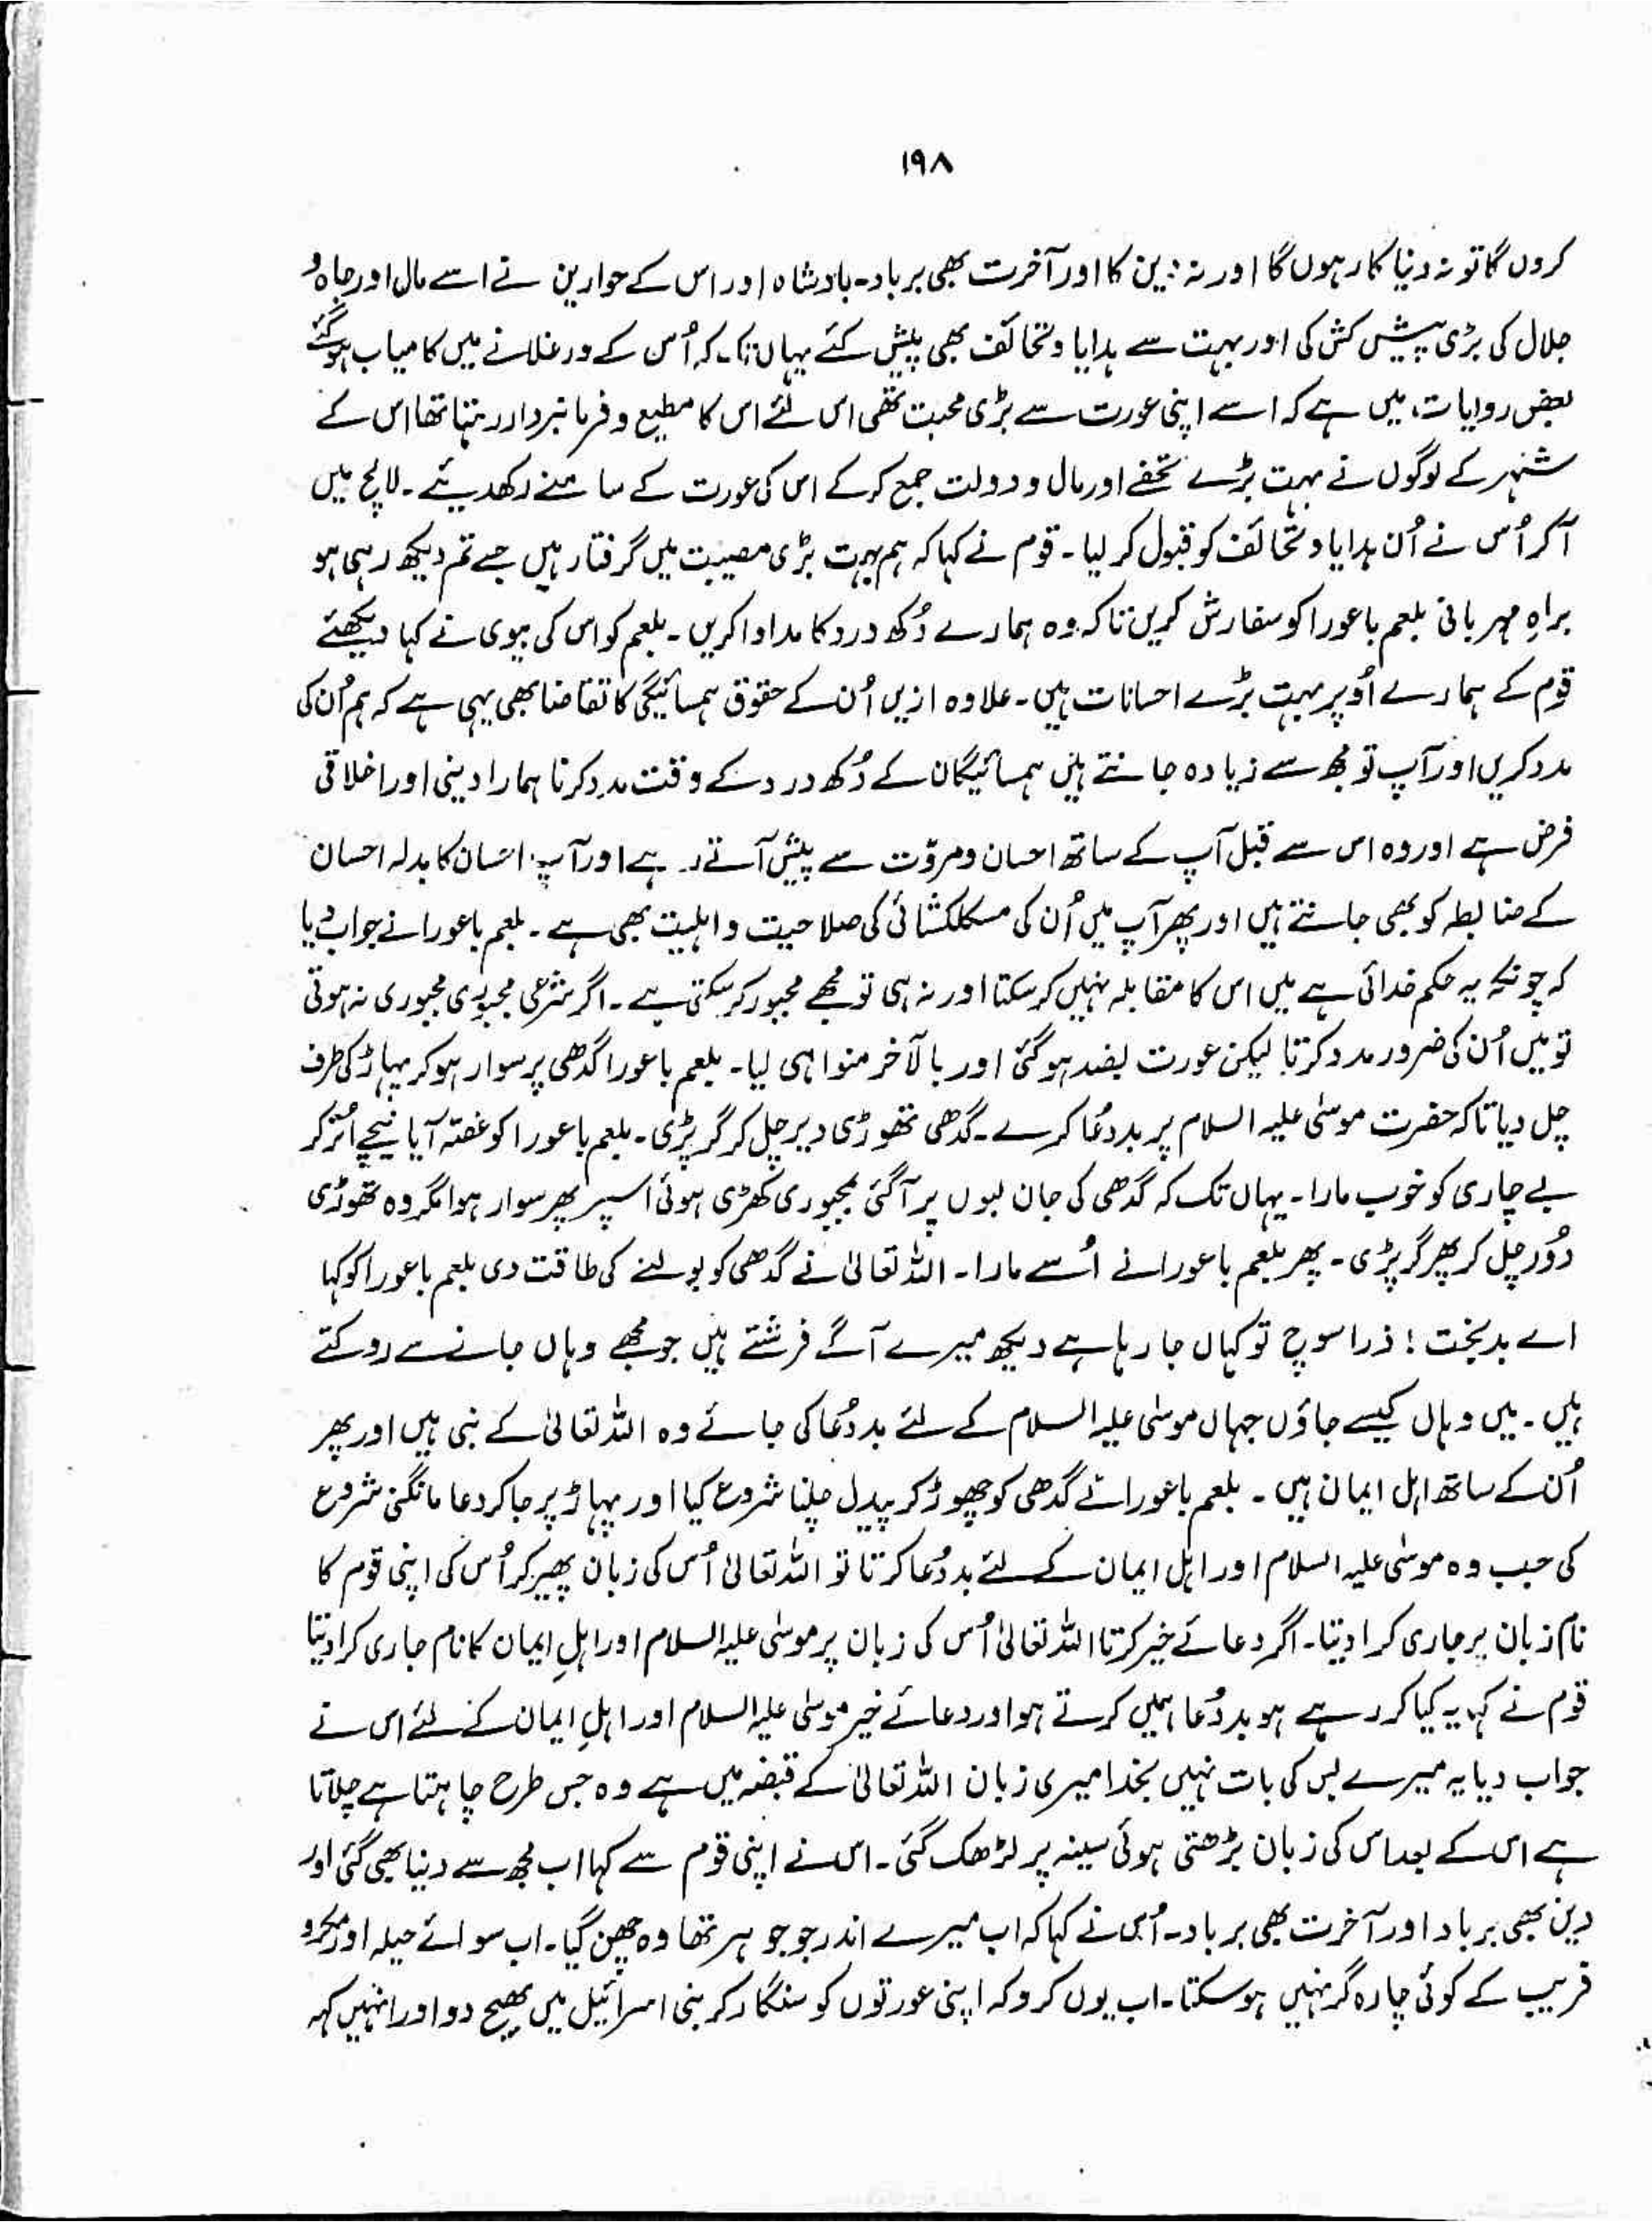 ۱۹۸
کروں گا تو نہ دنیا کا رہوں گا اور نہ دین کا اور آخرت بھی برباد۔ بادشاہ اور اس کے حوارین نے اسے مال اور جاہ و
جلال کی بڑی پیش کش کی اور بہت سے ہدایا و تحائف بھی پیش کئے یہاں تک کہ اُس کے ورغلانے میں کامیاب ہوگئے
بعض روایات میں ہے کہ اسے اپنی عورت سے بڑی محبت تھی اس لئے اس کا مطیع و فرمانبردار رہتا تھا اس کے
شہر کے لوگوں نے بہت بڑے تحفے اور مال و دولت جمع کرکے اس کی عورت کے سامنے رکھدیئے۔ لالچ میں
آکر اُس نے اُن ہدایا و تحائف کو قبول کر لیا۔ قوم نے کہا کہ ہم بہت بڑی مصیبت میں گرفتار ہیں جسے تم دیکھ رہی ہو
براہِ مہربانی بلعم باعورا کو سفارش کریں تاکہ وہ ہمارے دُکھ درد کا مداوا کریں۔ بلعم کو اس کی بیوی نے کہا دیکھئے
قوم کے ہمارے اُوپر بہت بڑے احسانات ہیں۔ علاوہ ازیں اُن کے حقوق ہمسائیگی کا تقاضا بھی یہی ہے کہ ہم اُن کی
مدد کریں اور آپ تو مجھ سے زیادہ جانتے ہیں ہمسائیگان کے دُکھ درد کے وقت مدد کرنا ہمارا دینی اور اخلاقی
فرض ہے اور وہ اس سے قبل آپ کے ساتھ احسان و مروّت سے پیش آتے رہے اور آپ احسان کا بدلہ احسان
کے ضابطہ کو بھی جانتے ہیں اور پھر آپ میں اُن کی مشکلکشائی کی صلاحیت و اہلیت بھی ہے۔ بلعم باعورا نے جواب دیا
کہ چونکہ یہ حکم خدائی ہے میں اس کا مقابلہ نہیں کر سکتا اور نہ ہی تو مجھے مجبور کر سکتی ہے۔ اگر شرعی مجبوری مجبوری نہ ہوتی
تو میں اُن کی ضرور مدد کرتا لیکن عورت بضد ہوگئی اور بالآخر منوا ہی لیا۔ بلعم باعورا گدھی پر سوار ہو کر پہاڑ کی طرف
چل دیا تاکہ حضرت موسیٰ علیہ السلام پر بددُعا کرے۔ گدھی تھوڑی دیر چل کر گر پڑی۔ بلعم باعورا کو غصّہ آیا نیچے اُتر کر
بے چاری کو خوب مارا۔ یہاں تک کہ گدھی کی جان لبوں پر آگئی مجبوری کھڑی ہوئی اسپر پھر سوار ہوا مگر وہ تھوڑی
دُور چل کر پھر گر پڑی۔ پھر بلعم باعورا نے اُسے مارا۔ اللہ تعالیٰ نے گدھی کو بولنے کی طاقت دی بلعم باعورا کو کہا
اے بدبخت! ذرا سوچ تو کہاں جا رہا ہے دیکھ میرے آگے فرشتے ہیں جو مجھے وہاں جانے سے روکتے
ہیں۔ میں وہاں کیسے جاؤں جہاں موسیٰ علیہ السلام کے لئے بددُعا کی جائے وہ اللہ تعالیٰ کے نبی ہیں اور پھر
اُن کے ساتھ اہل ایمان ہیں۔ بلعم باعورا نے گدھی کو چھوڑ کر پیدل چلنا شروع کیا اور پہاڑ پر جا کر دعا مانگنی شروع
کی جب وہ موسیٰ علیہ السلام اور اہل ایمان کے لئے بددُعا کرتا تو اللہ تعالیٰ اُس کی زبان پھیر کر اُس کی اپنی قوم کا
نام زبان پر جاری کرا دیتا۔ اگر دعائے خیر کرتا اللہ تعالیٰ اُس کی زبان پر موسیٰ علیہ السلام اور اہلِ ایمان کا نام جاری کرا دیتا
قوم نے کہا یہ کیا کر رہے ہو بددُعا ہمیں کرتے ہو اور دعائے خیر موسیٰ علیہ السلام اور اہلِ ایمان کے لئے اس نے
جواب دیا یہ میرے بس کی بات نہیں بخدا میری زبان اللہ تعالیٰ کے قبضہ میں ہے وہ جس طرح چاہتا ہے چلاتا
ہے اس کے بعد اس کی زبان بڑھتی ہوئی سینہ پر لڑھک گئی۔ اس نے اپنی قوم سے کہا اب مجھ سے دنیا بھی گئی اور
دین بھی برباد اور آخرت بھی برباد۔ اُس نے کہا کہ اب میرے اندر جو جوہر تھا وہ چھن گیا۔ اب سوائے حیلہ اور مکر و
فریب کے کوئی چارہ گر نہیں ہو سکتا۔ اب یوں کرو کہ اپنی عورتوں کو سنگار کر بنی اسرائیل میں بھیج دو اور انہیں کہہ